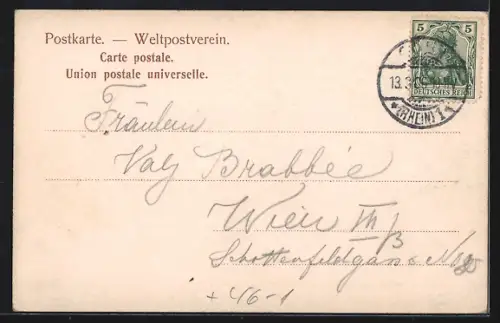 Postkarte. — Weltpostverein.
Carte postale.
Union postale universelle.
5 5
DEUTSCHES REICH
13.3
(RHEIN) 1
Fräulein
Valy Brabbée
Wien III/3
Schottenfeldgasse No
+ 46-1